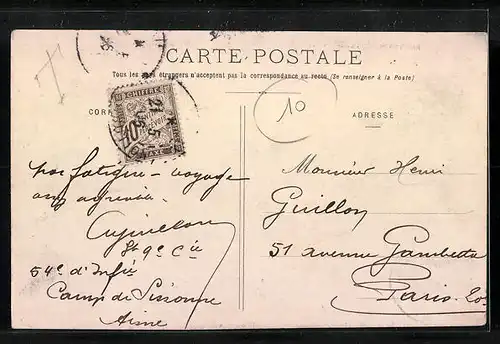 CARTE POSTALE
Tous les pays étrangers n'acceptent pas la correspondance au recto (Se renseigner à la Poste)
CORR
ADRESSE
CHIFFRE
10
TAXE
21
5
10
pas fatigué - voyage
agréable
9e Cie
54e d'Infie
Camp de Sissonne
Aisne
Monsieur Henri
Guillon
51 avenue Gambetta
Paris 20e